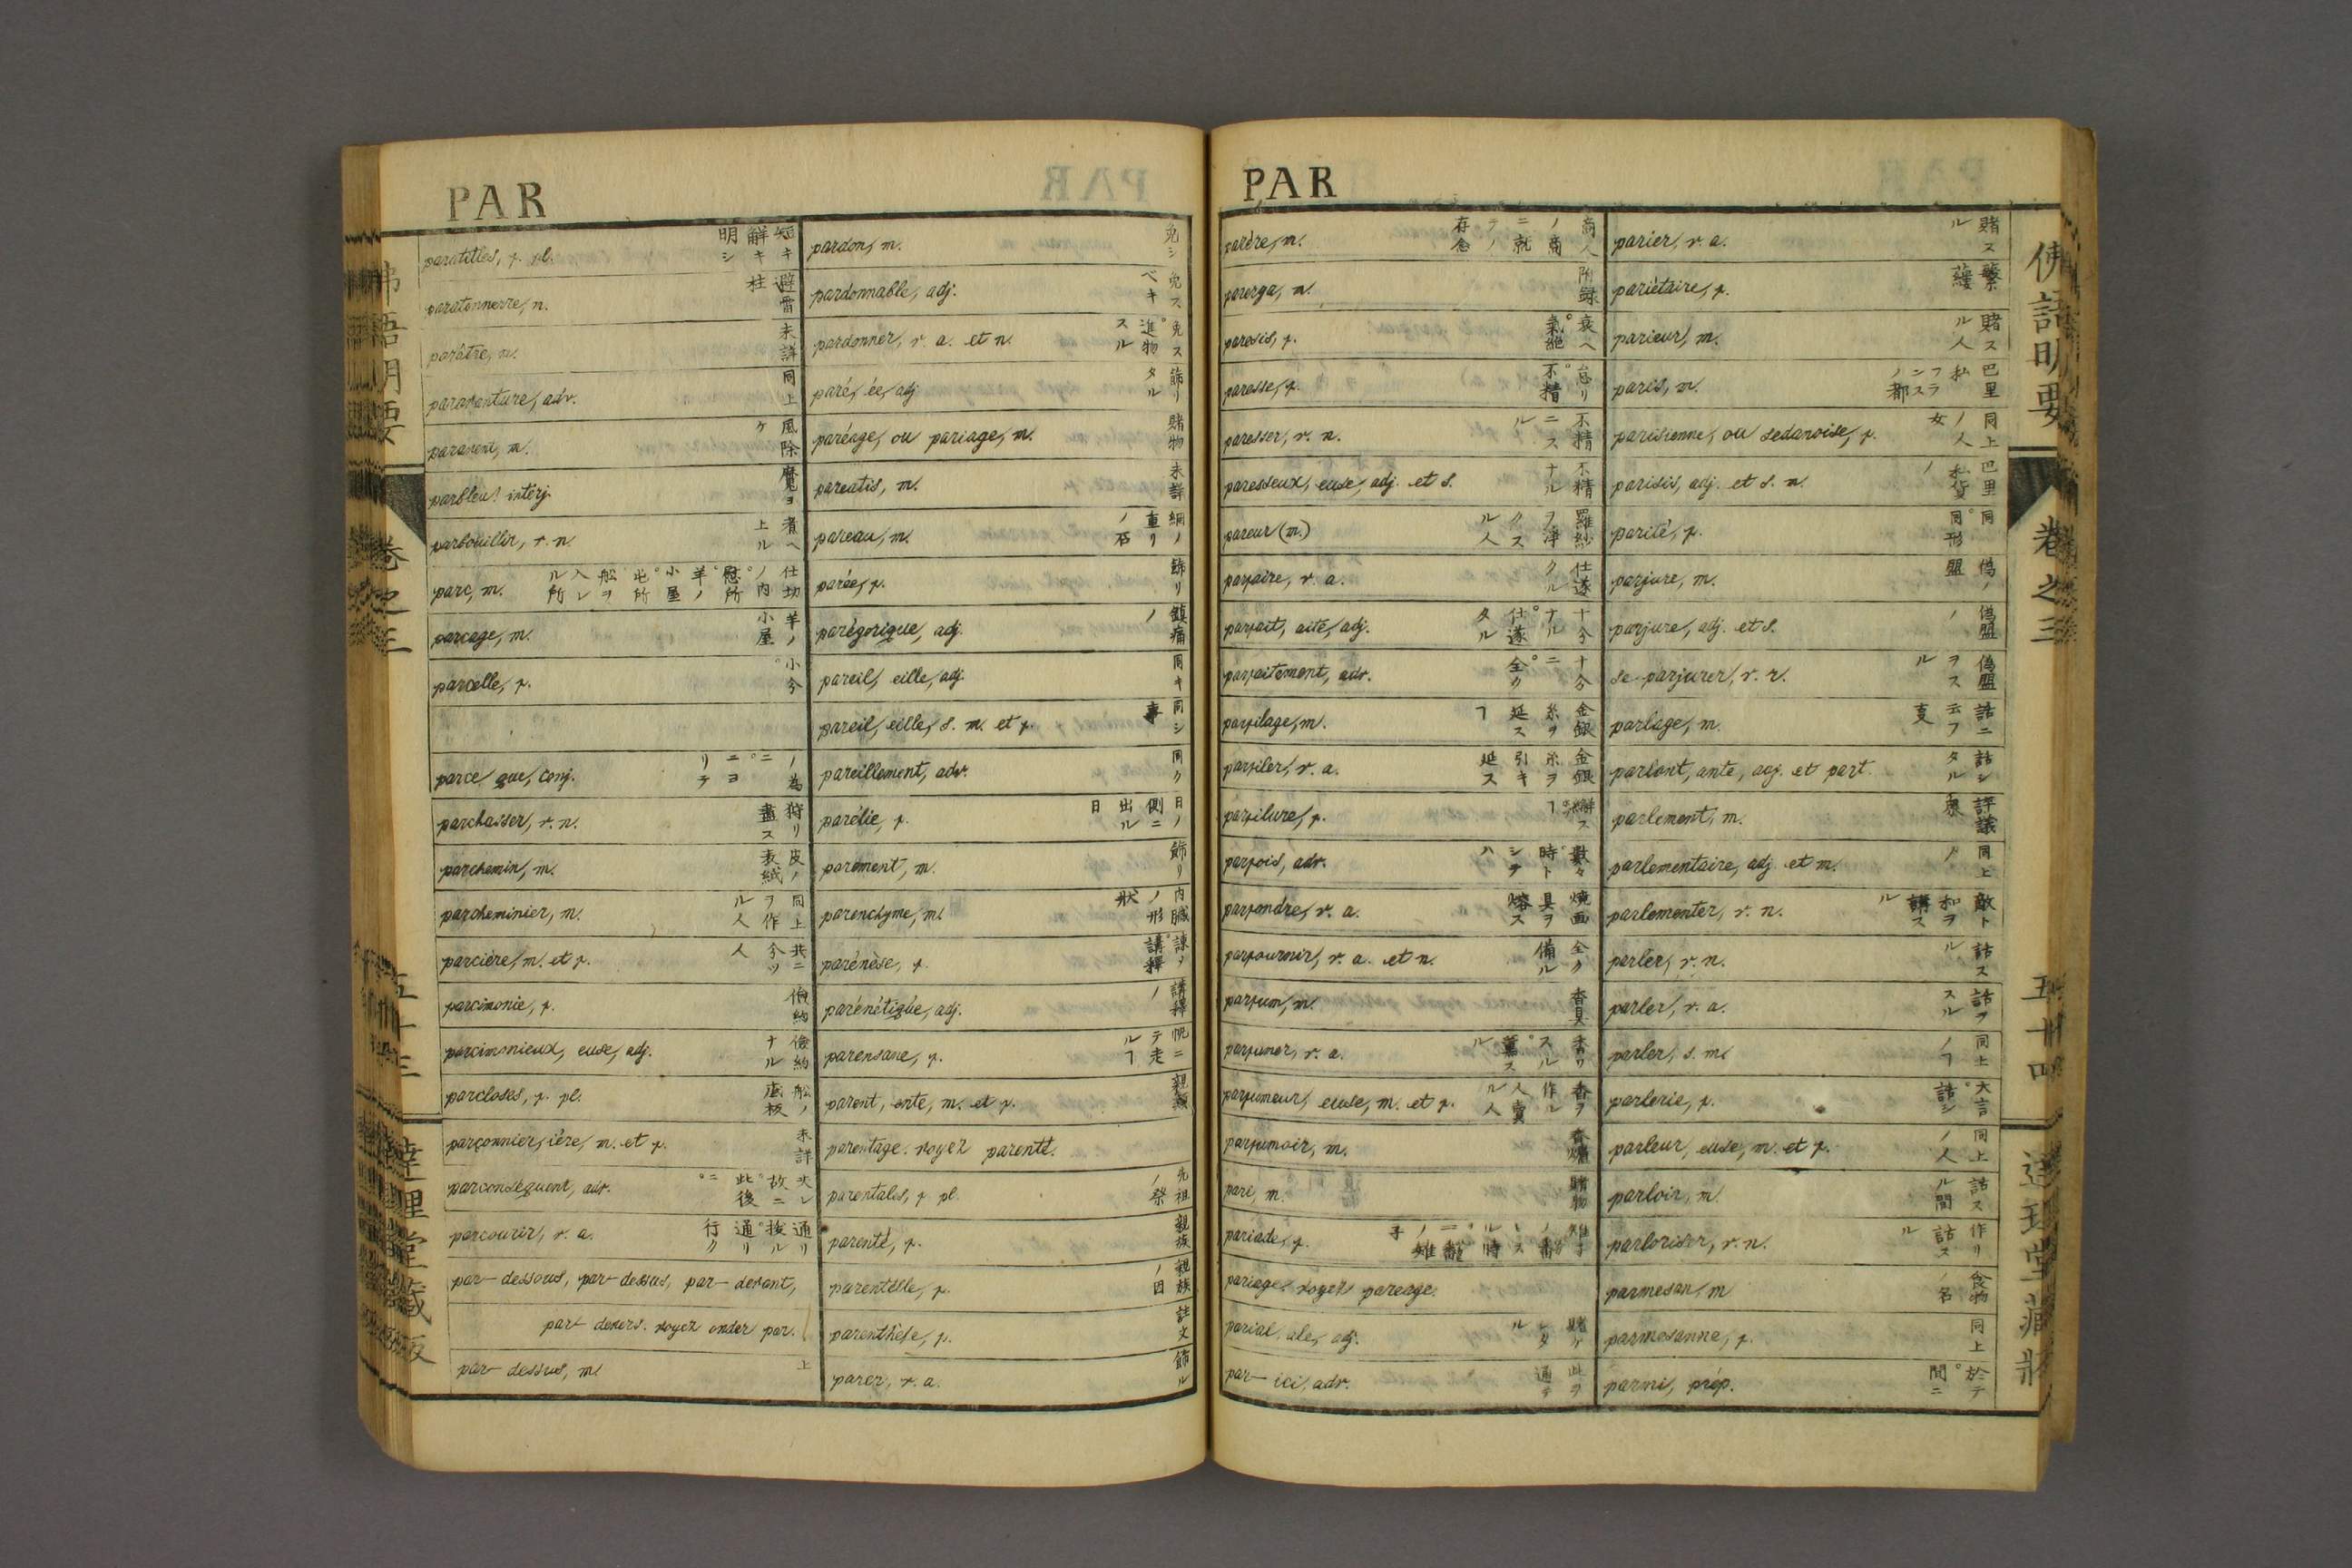 PAR
paratitles, f. pl. 短キ解キ明シ
paratonnerre, m. 避雷柱
parâtre, m. 未詳
paraventure, adv. 同上
paravent, m. 風除ケ
parbleu! intérj.
parbouillir, v. n. 煮ヘ上ル
parc, m.
parcage, m. 羊ノ小屋
parcelle, f. 小分
parce que, conj.
parchasser, v. n. 狩リ盡ス
parchemin, m.
parcheminier, m. 同上ヲ作ル人
parcière, m. et f. 共ニ分ツ人
parcimonie, f. 儉約
parcimonieux, euse, adj. 儉約ナル
parcloses, f. pl. 船ノ底板
parçonnier, ière, m. et f. 未詳
parconséquent, adv.
parcourir, v. a.
par-dessous, par-dessus, par-devant,
par-devers. voyez under par.
par-dessus, m. 上
pardon, m. 免シ
pardonnable, adj. 免スベキ
pardonner, v. a. et n. 免ス。進物スル
paré, ée, adj. 飾リタル
paréage, ou pariage, m. 賭物
pareatis, m. 未詳
pareau, m. 網ノ重リノ石
parée, f. 飾リ
parégorique, adj. 鎮痛ノ
pareil, eille, adj. 同キ
pareil, eille, s. m. et f. 同シ事
pareillement, adv. 同ク
parélie, f. 日ノ側ニ出ル日
parement, m. 飾リ
parenchyme, m. 内臓ノ形状
parénèse, f.
parénétique, adj. 講釋ノ
parensane, f. 帆ニテ走ルヿ
parent, ente, m. et f. 親類
parentage. voyez parenté.
parentales, f. pl. 先祖ノ祭
parenté, f. 親族
parentèle, f. 親族ノ因
parenthèse, f. 註文
parer, v. a. 飾ル
PAR
parère, m. 商人ノ商ニ就テノ存念
parerga, m. 附録
paresis, f. 衰ヘ。氣絶
paresse, f. 怠リ。不精
paresser, v. n. 不精ニスル
paresseux, euse, adj. et s. 不精ナル
pareur (m.)
parfaire, v. a. 仕遂クル
parfait, aite, adj. 十分ナル。仕遂タル
parfaitement, adv. 十分ニ。全ク
parfilage, m. 金銀糸ヲ延スヿ
parfiler, v. a. 金銀糸ヲ引キ延ス
parfilure, f.
parfois, adv. 數々。時トシテハ
parfondre, v. a. 燒画具ヲ熔ス
parfournir, v. a. et n. 全ク備ル
parfum, m. 香具
parfumer, v. a.
parfumeur, euse, m. et f. 香ヲ作ル人。賣ル人
parfumoir, m. 香爐
pari, m. 賭物
pariade, f.
pariage. voyez pareage.
parial, ale, adj.
par-ici, adv. 此ヲ通テ
parier, v. a. 賭スル
pariétaire, f. 蘩蔞
parieur, m. 賭スル人
paris, m. 巴里 私 フランスノ都
parisienne, ou sedanoise, f. 同上ノ人女
parisis, adj. et s. m. 巴里私貨ノ
parité, f. 同。同形
parjure, m. 偽ノ盟
parjure, adj. et s. 偽盟ノ
se parjurer, v. r. 偽盟ヲスル
parlage, m.
parlant, ante, adj. et part. 話シタル
parlement, m.
parlementaire, adj. et m. 同上ノ
parlementer, v. n. 敵ト和ヲ講スル
parler, v. n. 話スル
parler, v. a. 話ヲスル
parler, s. m. 同上ノヿ
parlerie, f. 大言。話シ
parleur, euse, m. et f. 同上ノ人
parloir, m. 話スル間
parloriser, v. n. 作リ話スル
parmesan, m. 食物ノ名
parmesanne, f. 同上
parmi, prép. 於テ。間ニ
佛語明要
卷之三
五十四
達理堂藏版